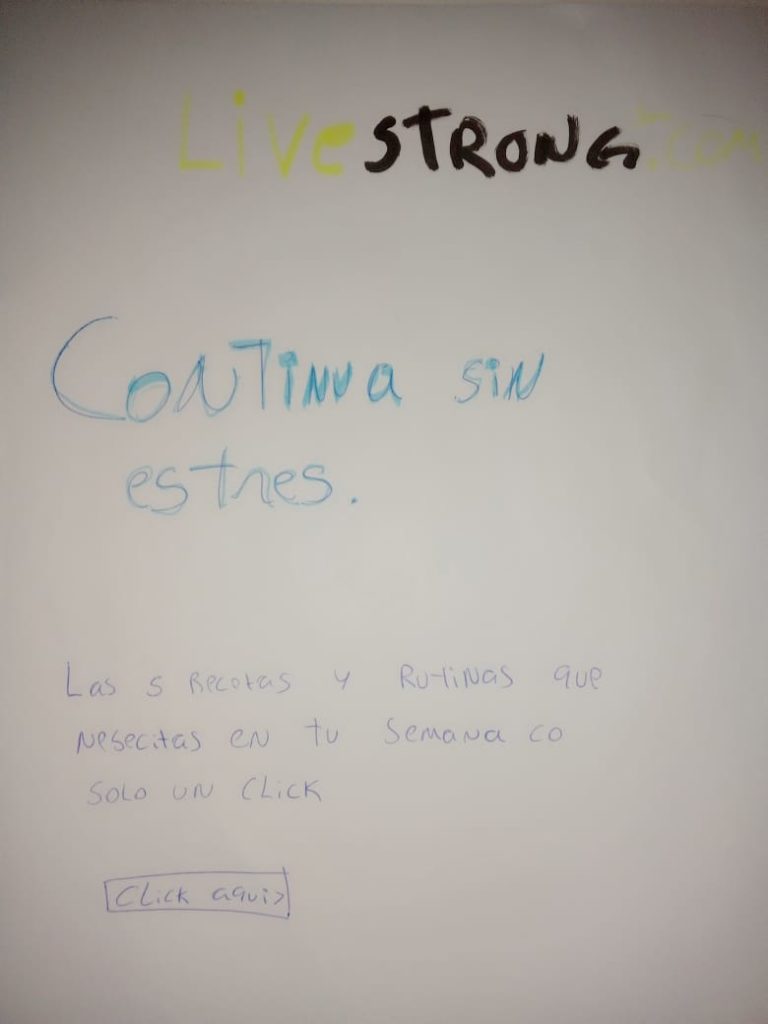 LiveSTRONG.com
CONTINUA SIN
estres.
Las 5 Recetas y RutiNas que
Nesecitas en tu semana co
solo un click
Click aqui>